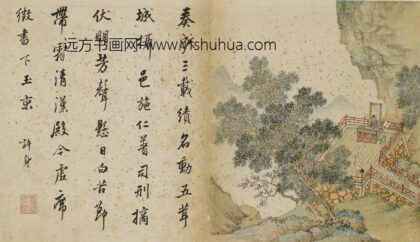 奏三載績名動五茸
城攝邑施仁普司刑摘
伏明芳聲懸日白苦節
帶霜清漢殿今虛席
徵書下玉京 許
远方书画网www.yfshuhua.com